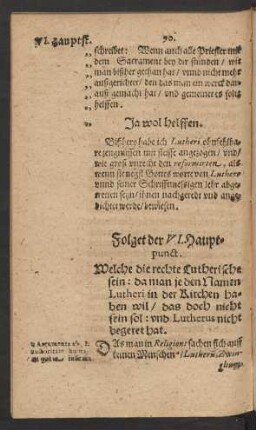 VI. Hauptst.
90.
schreibet: Wenn auch alle Priester mit
dem Sacrament bey dir stünden / wie
man bißher gethan hat / vnnd nicht mehr
außgerichtet / den das man ein werck dar-
auß gemacht hat / vnd gemeinet es solt
helffen.
Ja wol helffen.
Bißhero habe ich Lutheri
re zeugnussen mit fleisse angezogen / vnd /
wie groß vnrecht den
wenn sie newlich Gottes worte von Luthero
vnnd seiner
wenen sein / ihnen nachgeredt vnd ange-
dichtet werde / bewiesen.
Folget der VI. Haupt-
punct.
Welche die rechte Lutherische
sein: da man je den Namen
Lutheri in der Kirchen ha-
ben wil / das doch nicht
sein sol: vnd Lutherus nicht
begeret hat.
Das man in Religion sachen sich auff
keinen Menschen / Lutherū, Zwin-
glium,